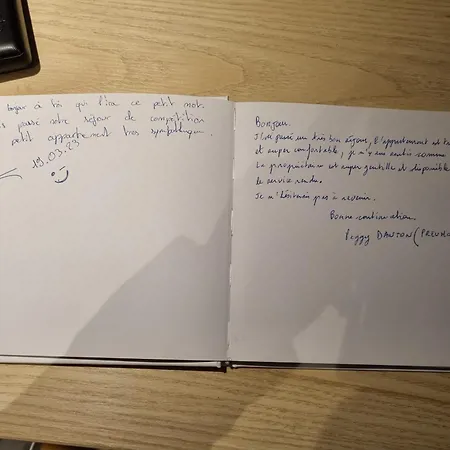 à toi qui lira ce petit mot.
passé notre séjour de compétition
petit appartement très sympathique.
19.03.23
Bonjour.
J'ai passé un très bon séjour, l'appartement est
et super confortable, je m'y sens comme
La propriétaire est super gentille et disponible
le service rendu.
Je n'hésiterai pas à revenir.
Bonne continuation.
Peggy DANTON (